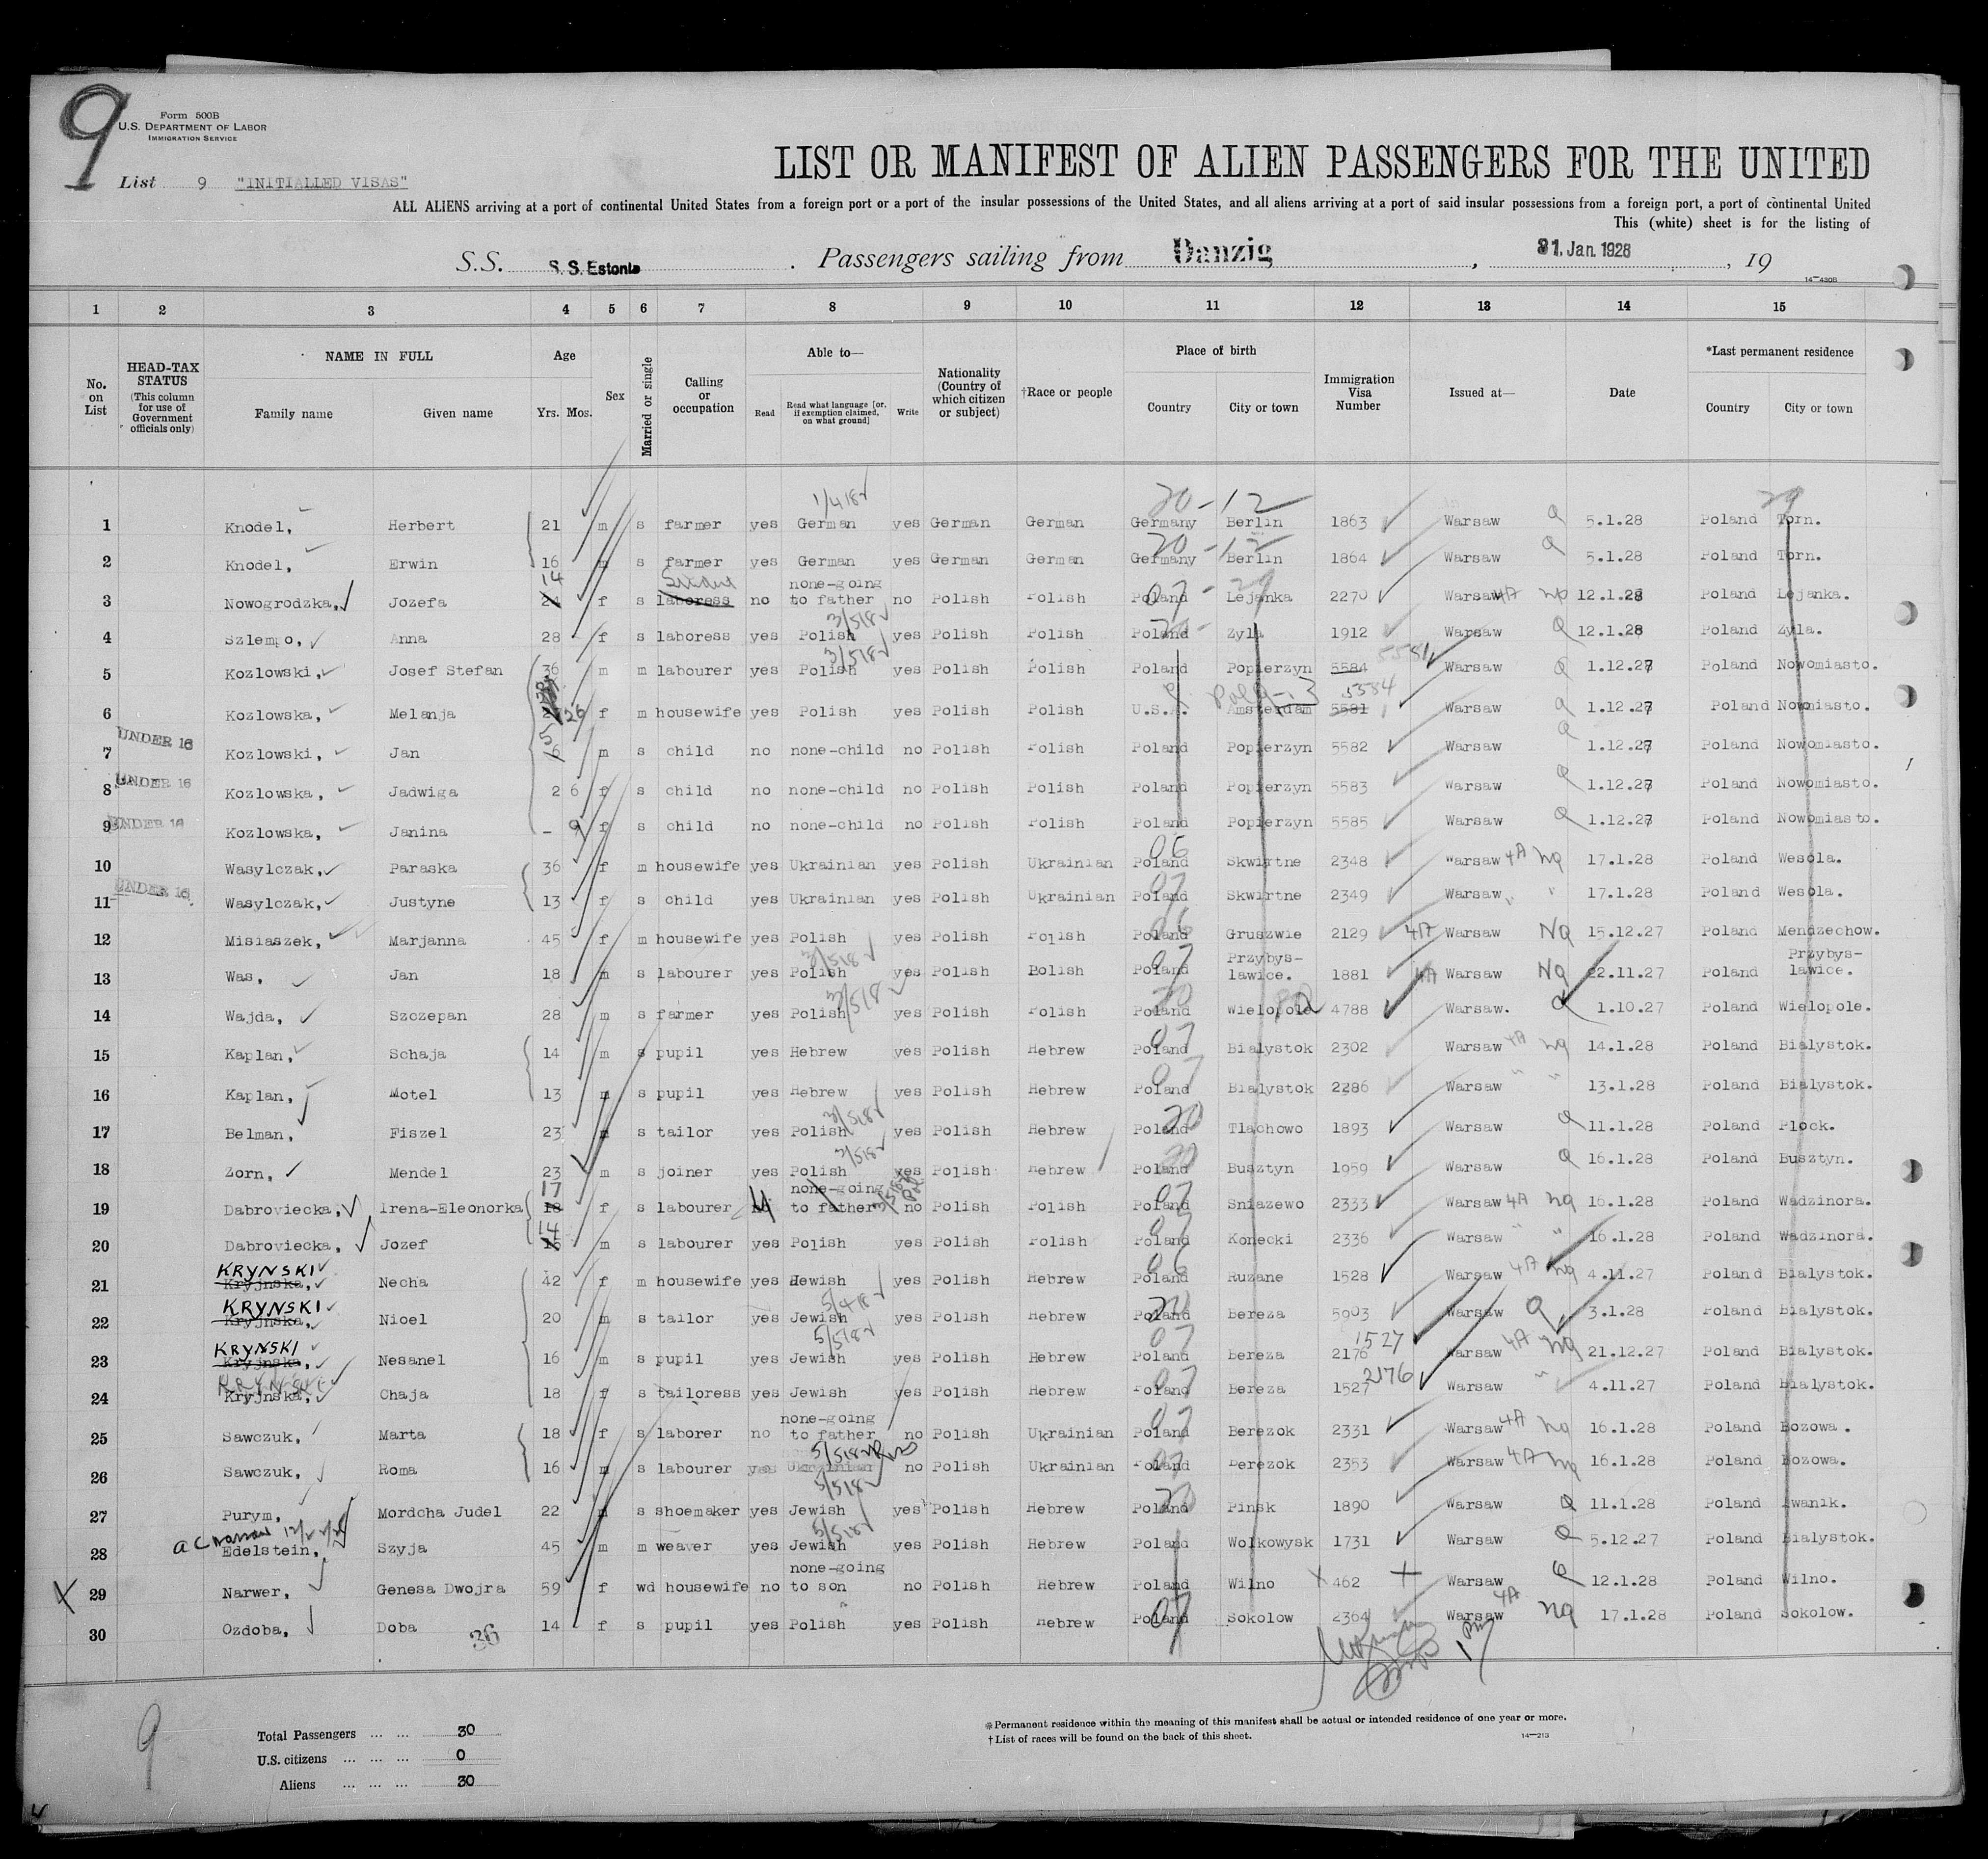 9
Form 500B
U.S. DEPARTMENT OF LABOR
IMMIGRATION SERVICE
List 9 "INITIALLED VISAS"
LIST OR MANIFEST OF ALIEN PASSENGERS FOR THE UNITED
ALL ALIENS arriving at a port of continental United States from a foreign port or a port of the insular possessions of the United States, and all aliens arriving at a port of said insular possessions from a foreign port, a port of continental United
This (white) sheet is for the listing of
S.S. S. S. Estonia . Passengers sailing from Danzig , 31. Jan. 1928 , 19
14—430B
1 2 3 4 5 6 7 8 9 10 11 12 13 14 15
No. on List
HEAD-TAX STATUS (This column for use of Government officials only)
NAME IN FULL Family name Given name
Age Yrs. Mos.
Sex
Married or single
Calling or occupation
Able to— Read Read what language [or, if exemption claimed, on what ground] Write
Nationality (Country of which citizen or subject)
†Race or people
Place of birth Country City or town
Immigration Visa Number
Issued at—
Date
*Last permanent residence Country City or town
1 Knodel, Herbert 21 m s farmer yes German yes German German Germany Berlin 1863 Warsaw Q 5.1.28 Poland Torn.
2 Knodel, Erwin 16 m s farmer yes German yes German German Germany Berlin 1864 Warsaw Q 5.1.28 Poland Torn.
3 Nowogrodzka, Jozefa 14 f s laboress no none-going to father no Polish Polish Poland Lejanka 2270 Warsaw 4A 12.1.28 Poland Lejanka.
4 Szlempo, Anna 28 f s laboress yes Polish yes Polish Polish Poland Zyla 1912 Warsaw Q 12.1.28 Poland Zyla.
5 Kozlowski, Josef Stefan 36 m m labourer yes Polish yes Polish Polish Poland Popierzyn 5584 5581 Warsaw Q 1.12.27 Poland Nowomiasto.
6 Kozlowska, Melanja 26 f m housewife yes Polish yes Polish Polish U.S.A. Amsterdam 5581 5584 Warsaw Q 1.12.27 Poland Nowomiasto.
7 UNDER 16 Kozlowski, Jan 5 m s child no none-child no Polish Polish Poland Popierzyn 5582 Warsaw Q 1.12.27 Poland Nowomiasto.
8 UNDER 16 Kozlowska, Jadwiga 2 6 f s child no none-child no Polish Polish Poland Popierzyn 5583 Warsaw Q 1.12.27 Poland Nowomiasto.
9 UNDER 16 Kozlowska, Janina - 9 f s child no none-child no Polish Polish Poland Popierzyn 5585 Warsaw Q 1.12.27 Poland Nowomiasto.
10 Wasylczak, Paraska 36 f m housewife yes Ukrainian yes Polish Ukrainian Poland Skwirtne 2348 Warsaw 4A nq 17.1.28 Poland Wesola.
11 UNDER 16 Wasylczak, Justyne 13 f s child yes Ukrainian yes Polish Ukrainian Poland Skwirtne 2349 Warsaw " " 17.1.28 Poland Wesola.
12 Misiaszek, Marjanna 45 f m housewife yes Polish yes Polish Polish Poland Gruszwie 2129 4A Warsaw NQ 15.12.27 Poland Mendzechow.
13 Was, Jan 18 m s labourer yes Polish yes Polish Bolish Poland Przybys-lawice. 1881 4A Warsaw NQ 22.11.27 Poland Przybys-lawice.
14 Wajda, Szczepan 28 m s farmer yes Polish yes Polish Polish Poland Wielopole 4788 Warsaw. Q 1.10.27 Poland Wielopole.
15 Kaplan, Schaja 14 m s pupil yes Hebrew yes Polish Hebrew Poland Bialystok 2302 Warsaw 4A nq 14.1.28 Poland Bialystok.
16 Kaplan, Motel 13 m s pupil yes Hebrew yes Polish Hebrew Poland Bialystok 2286 Warsaw " " 13.1.28 Poland Bialystok.
17 Belman, Fiszel 23 m s tailor yes Polish yes Polish Hebrew Poland Tlachowo 1893 Warsaw Q 11.1.28 Poland Plock.
18 Zorn, Mendel 23 m s joiner yes Polish yes Polish Hebrew Poland Busztyn 1959 Warsaw Q 16.1.28 Poland Busztyn.
19 Dabroviecka, Irena-Eleonorka 17 18 f s labourer none-going to father no Polish Polish Poland Sniazewo 2333 Warsaw 4A nq 16.1.28 Poland Wadzinora.
20 Dabroviecka, Jozef 14 m s labourer yes Polish yes Polish Polish Poland Konecki 2336 Warsaw " " 16.1.28 Poland Wadzinora.
21 KRYNSKI Kryjnska, Necha 42 f m housewife yes Hewish yes Polish Hebrew Poland Ruzane 1528 Warsaw 4A nq 4.11.27 Poland Bialystok.
22 KRYNSKI Kryjnska, Nioel 20 m s tailor yes Jewish yes Polish Hebrew Poland Bereza 5903 Warsaw Q 3.1.28 Poland Bialystok.
23 KRYNSKI Kryjnska, Nesanel 16 m s pupil yes Jewish yes Polish Hebrew Poland Bereza 2176 1527 Warsaw 4A nq 21.12.27 Poland Bialystok.
24 Kryjnska, Chaja 18 f s tailoress yes Jewish yes Polish Hebrew Poland Bereza 1527 2176 Warsaw " 4.11.27 Poland Bialystok.
25 Sawczuk, Marta 18 f s laborer no none-going to father no Polish Ukrainian Poland Berezok 2331 Warsaw 4A nq 16.1.28 Poland Bozowa.
26 Sawczuk, Roma 16 m s labourer yes Ukrainian no Polish Ukrainian Poland Berezok 2353 Warsaw 4A nq 16.1.28 Poland Bozowa.
27 Purym, Mordcha Judel 22 m s shoemaker yes Jewish yes Polish Hebrew Poland Pinsk 1890 Warsaw Q 11.1.28 Poland Iwanik.
28 Edelstein, Szyja 45 m m weaver yes Jewish yes Polish Hebrew Poland Wolkowysk 1731 Warsaw Q 5.12.27 Poland Bialystok.
X 29 Narwer, Genesa Dwojra 59 f wd housewife no none-going to son no Polish Hebrew Poland Wilno X 462 X Warsaw Q 12.1.28 Poland Wilno.
30 Ozdoba, Doba 14 f s pupil yes Polish yes Polish Hebrew Poland Sokolow 2364 Warsaw 4A nq 17.1.28 Poland Sokolow.
36
9
Total Passengers ... ... 30
U.S. citizens ... ... ... 0
Aliens ... ... ... 30
*Permanent residence within the meaning of this manifest shall be actual or intended residence of one year or more.
†List of races will be found on the back of this sheet.
14—213